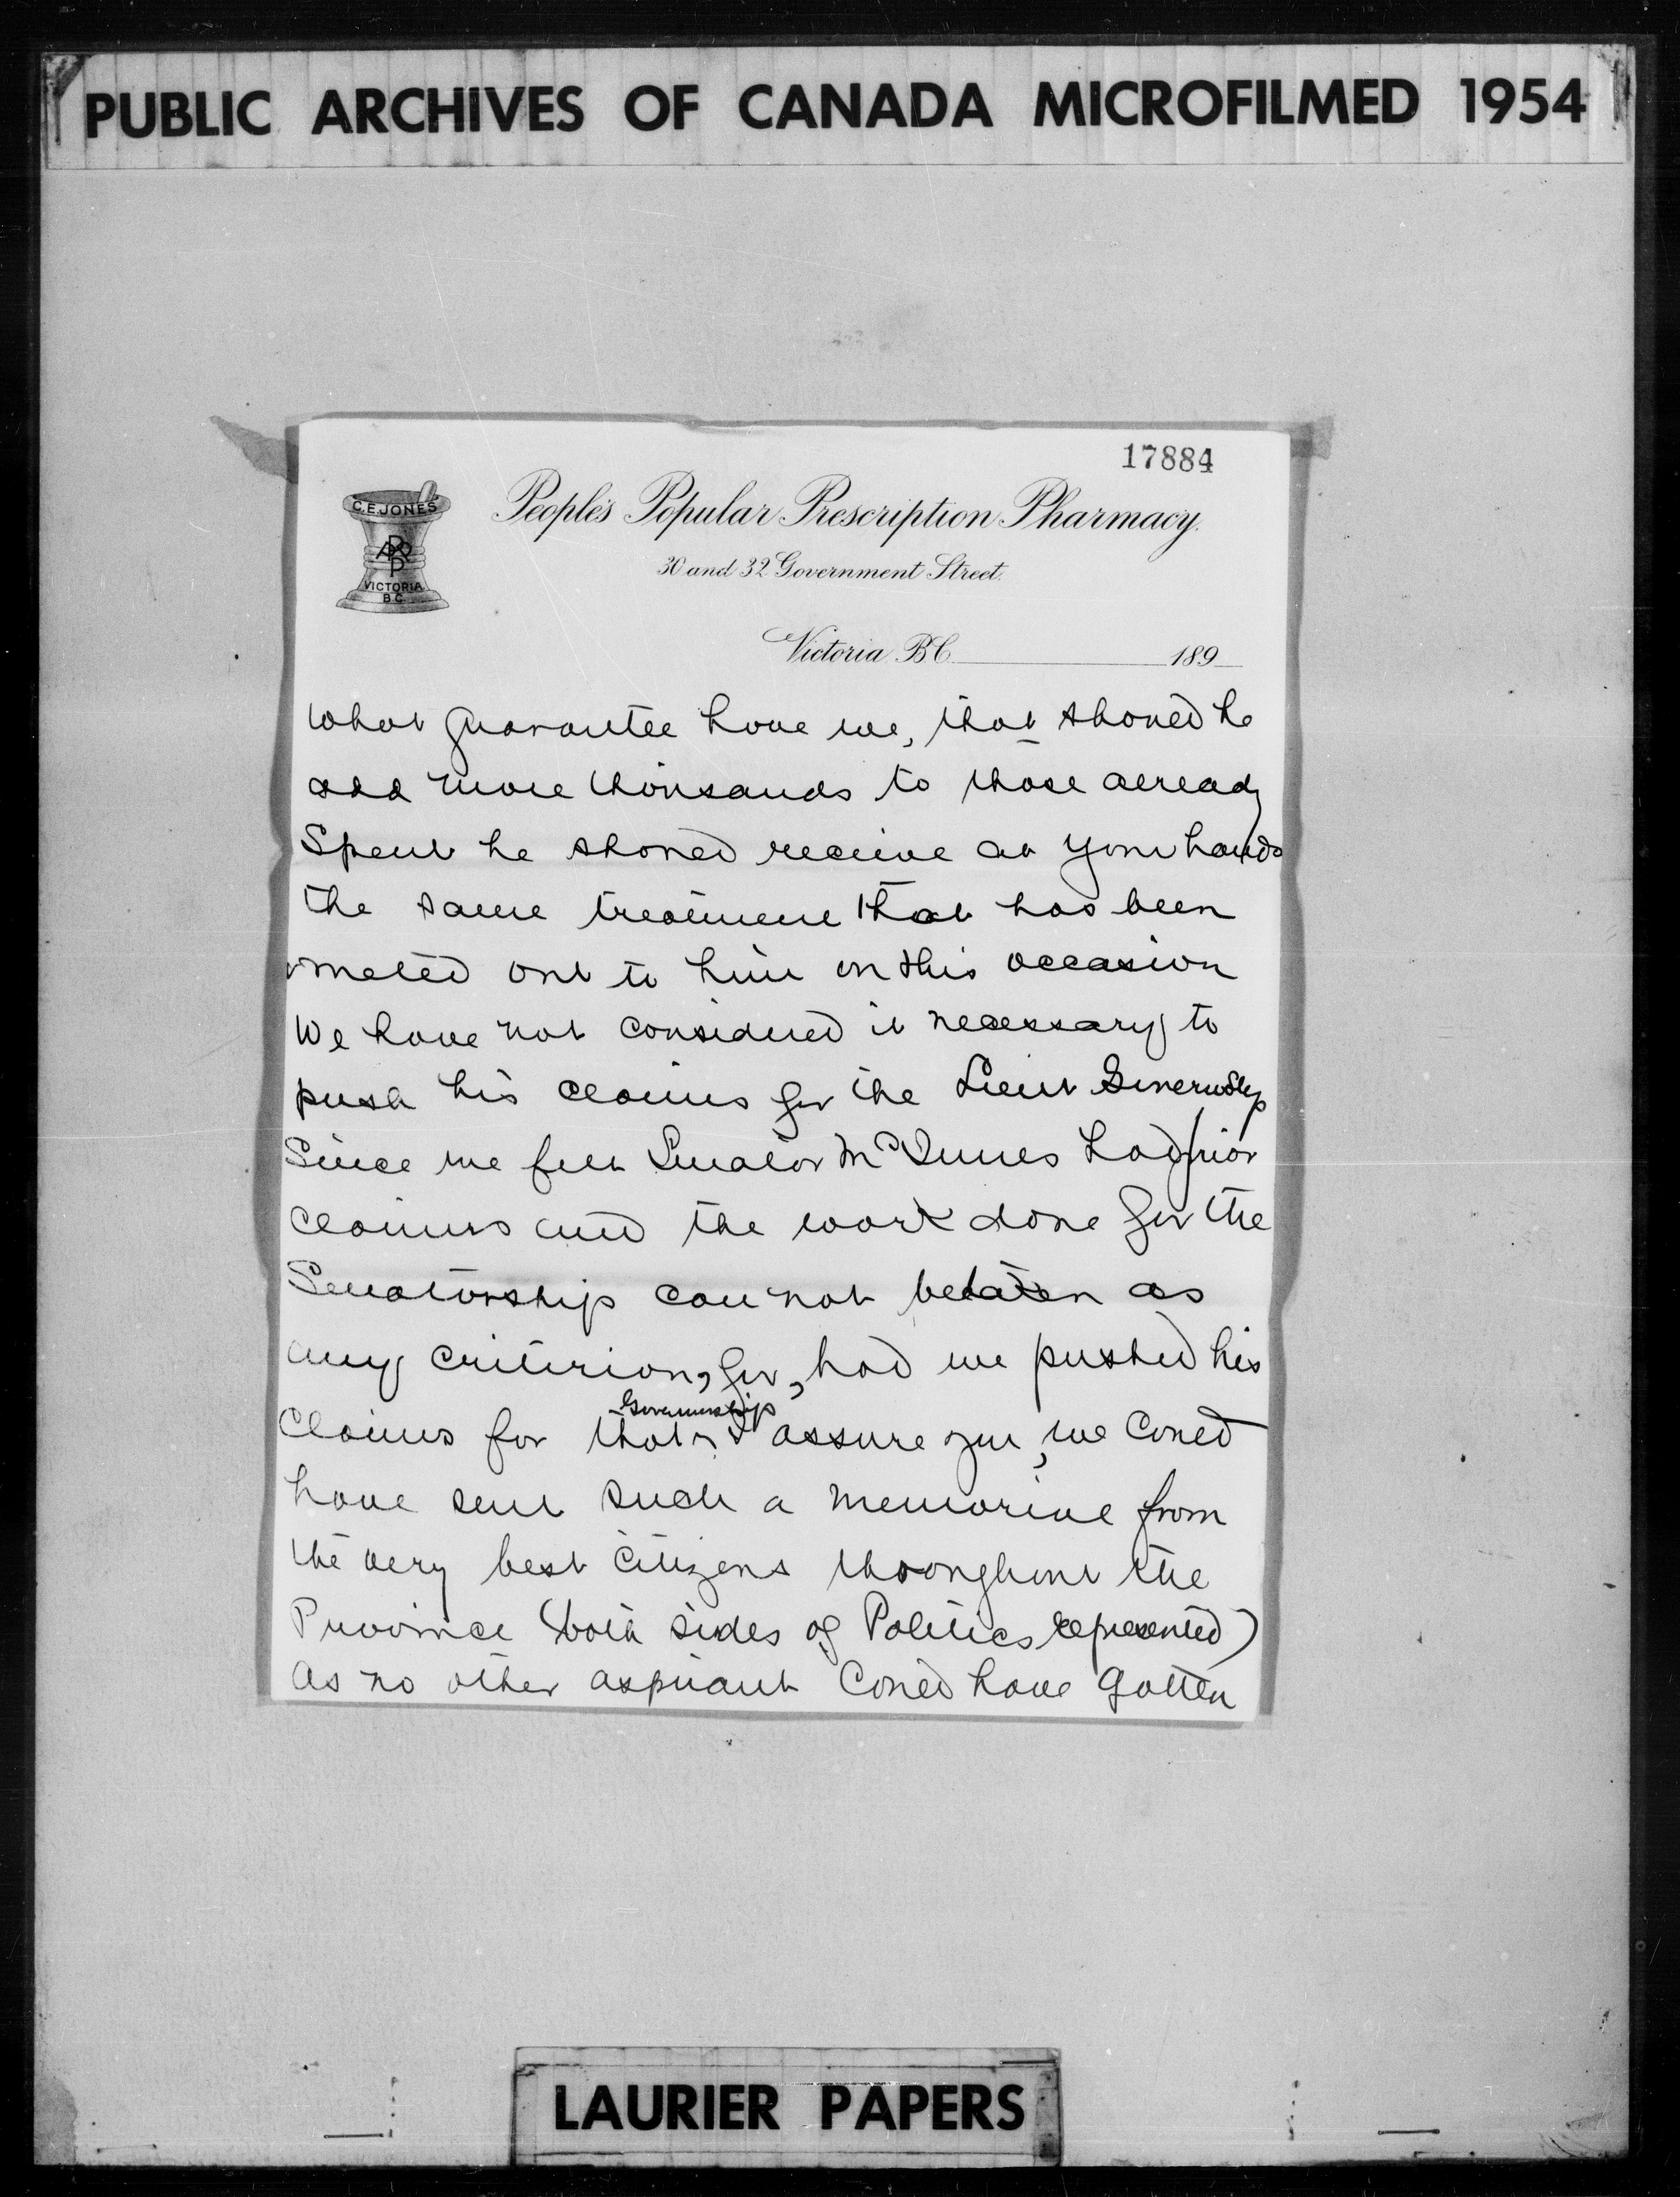 PUBLIC ARCHIVES OF CANADA MICROFILMED 1954
17884
C.E. JONES
VICTORIA
B.C.
People's Popular Prescription Pharmacy.
30 and 32 Government Street.
Victoria B.C. 189
What guarantee have we, that should he
add more thousands to those already
Spent he should receive at your hands
the same treatment that has been
meted out to him on this occasion
We have not considered it necessary to
push his claims for the Lieut Governship
Since we felt Senator McInnes had prior
claims and the work done for the
Senatorship can not be taken as
any criterion, for, had we pushed his
Governorship
Claims for that I assure you, we could
have sent such a memorial from
the very best Citizens throughout the
Province (both sides of Politics represented)
as no other aspirant Could have gotten
LAURIER PAPERS